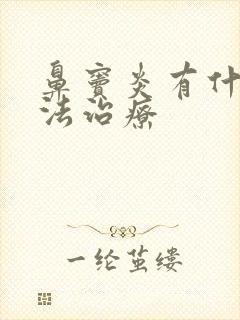 鼻窦炎有什
法治疗
一纶茧缕